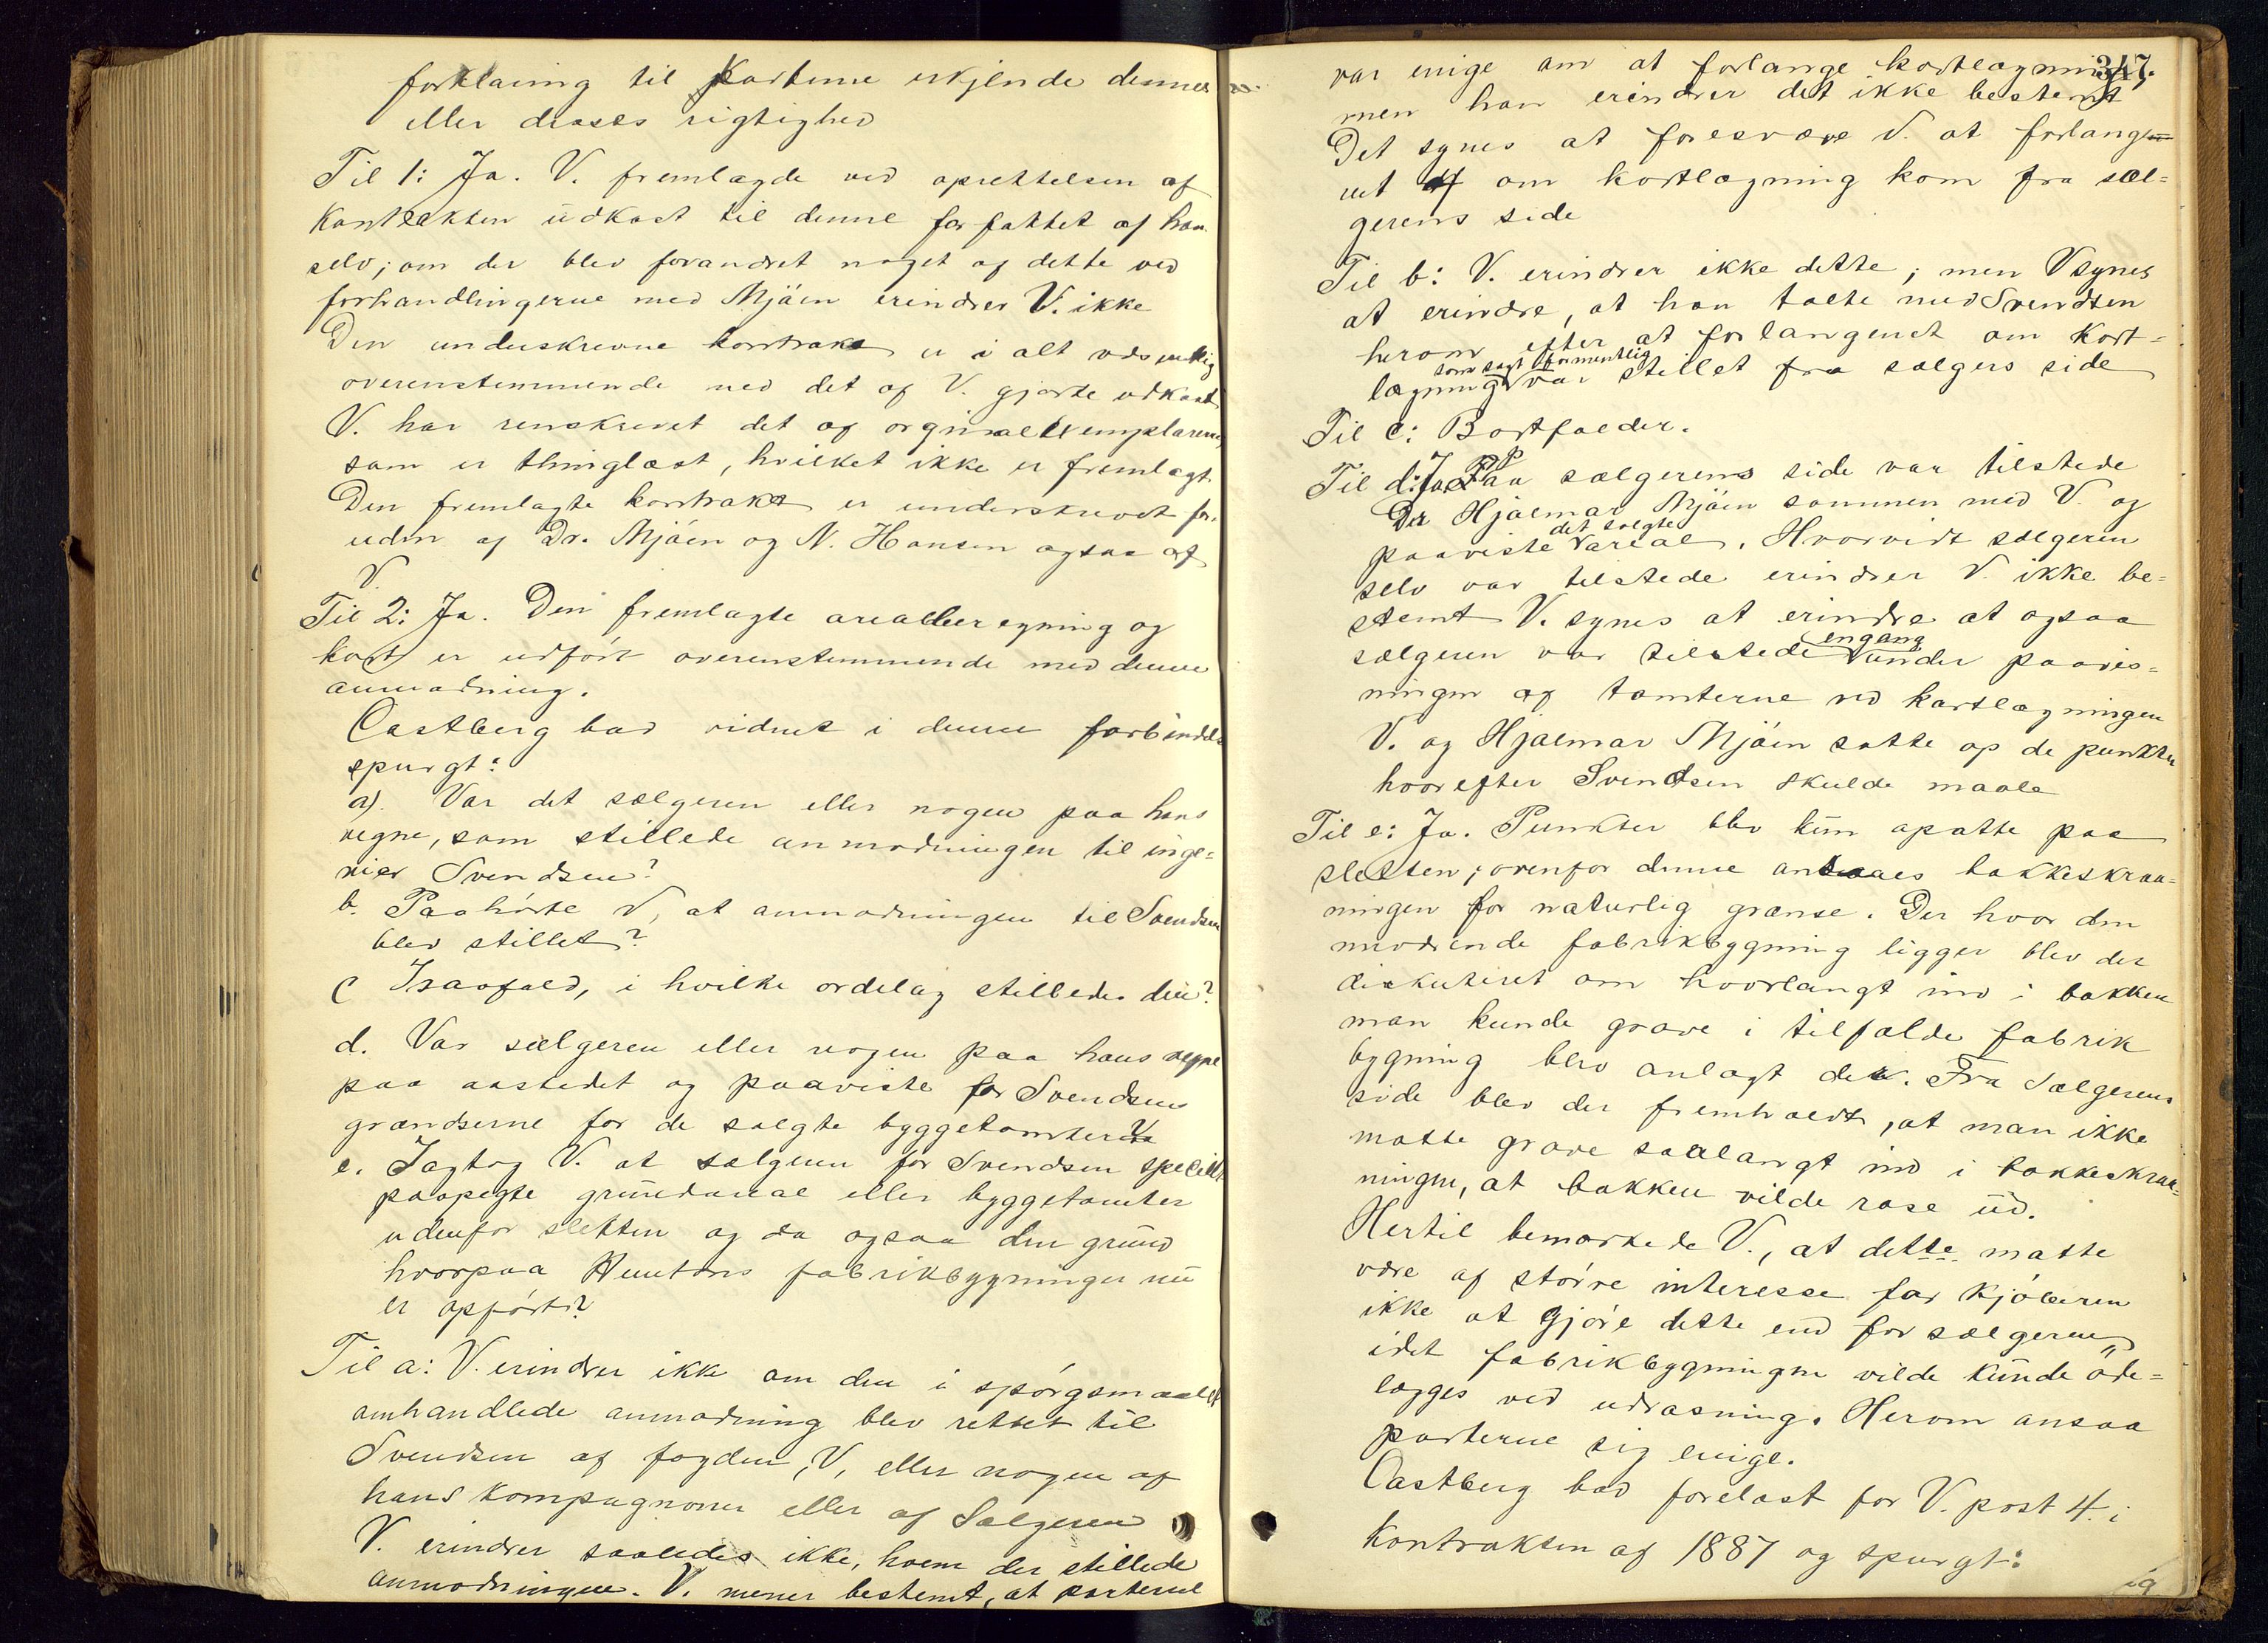 forklaring til Parterne erkjende dennes
eller disses rigtighed
Til 1: Ja. V. fremlagde ved oprettelsen af
Kontrakten udkast til denne forfattet af ham
selv; om der blev forandret noget af dette ved
forhandlingerne med Mjöen erindrer V. ikke
Den underskrevne kontrakt er i alt væsentlig
overenstemmende med det af V. gjorte udkast
V. har renskrevet det af orginalexemplarerne,
som er thinglæst, hvilket ikke er fremlagt.
Den fremlagte kontrakt er underskrevet for-
uden af Dr. Mjöen og N. Hansen ogsaa af
V.
Til 2: Ja. Den fremlagte arealberegning og
kart er udført overenstemmende med denne
anmodning.
Castberg bad vidnet i denne forbindelse
spurgt:
a). Var det sælgeren eller nogen paa hans
vegne, som stillede anmodningen til inge=
niør Svendsen?
b. Paahörte V, at anmodningen til Svendsen
blev stillet?
c Isaafald, i hvilke ordelag stilledes den?
d. Var sælgeren eller nogen paa hans vegne
paa aastedet og paaviste for Svendsen
grændserne for de solgte byggetomter
e. Iagtog V. at sælgeren for Svendsen specielt
paapegte grundareal eller byggetomter
udenfor sletten og da ogsaa den grund
hvorpaa Huntons fabrikbygninger nu
er opført?
Til a: V. erindrer ikke om den i spörgsmaalet
omhandlede anmodning blev rettet til
Svendsen af fogden, V, eller nogen af
hans kompagnoner eller af Sælgeren
V. erindrer saaledes ikke, hvem der stillede
anmodningen. V. mener bestemt, at parterne
347.
var enige om at forlange kortlægning,
men han erindrer det ikke bestemt
Det synes at foresvæve V. at forlang=
 det om kortlægning kom fra sæl=
gerens side
Til b: V. erindrer ikke dette; men V synes
at erindre, at han talte med Svendsen
herom efter at forlangendet om Kort=
som sagt formentlig
lægning var stillet fra sælgers side
Til c: Bortfalder.
Til d: Ja. Paa sælgerens side var tilstede
Dr Hjalmar Mjöen sammen med V. og
det solgte
paaviste areal. Hvorvidt sælgeren
selv var tilstede erindrer V. ikke be=
stemt V. synes at erindre at ogsaa
engang
sælgeren var tilstede under paavis=
ningen af tomterne ved kartlægningen
V. og Hjalmar Mjöen satte op de punkter
hvorefter Svendsen skulde maale
Til e: Ja. Punkter blev kun opsatte paa
sletten; ovenfor denne ansaaes bakkeskraa=
ningen for naturlig grænse. Der hvor den
nuværende fabrikbygning ligger blev der
diskuteret om hvorlangt ind i bakken
man kunde grave i tilfælde fabrik
bygning blev anlagt der. Fra Sælgerens
side blev der fremholdt, at man ikke
matte grave saalangt ind i bakkeskraa=
ningen, at bakken vilde rase ud.
Hertil bemærkede V., at dette matte
være af större interesse for kjöberen
ikke at gjöre dette end for sælgeren,
idet fabrikbygningen vilde kunde öde=
lægges ved udrasning. Herom ansaa
parterne sig enige.
Castberg bad forelæst for V. post 4. i
Kontrakten af 1887 og spurgt: